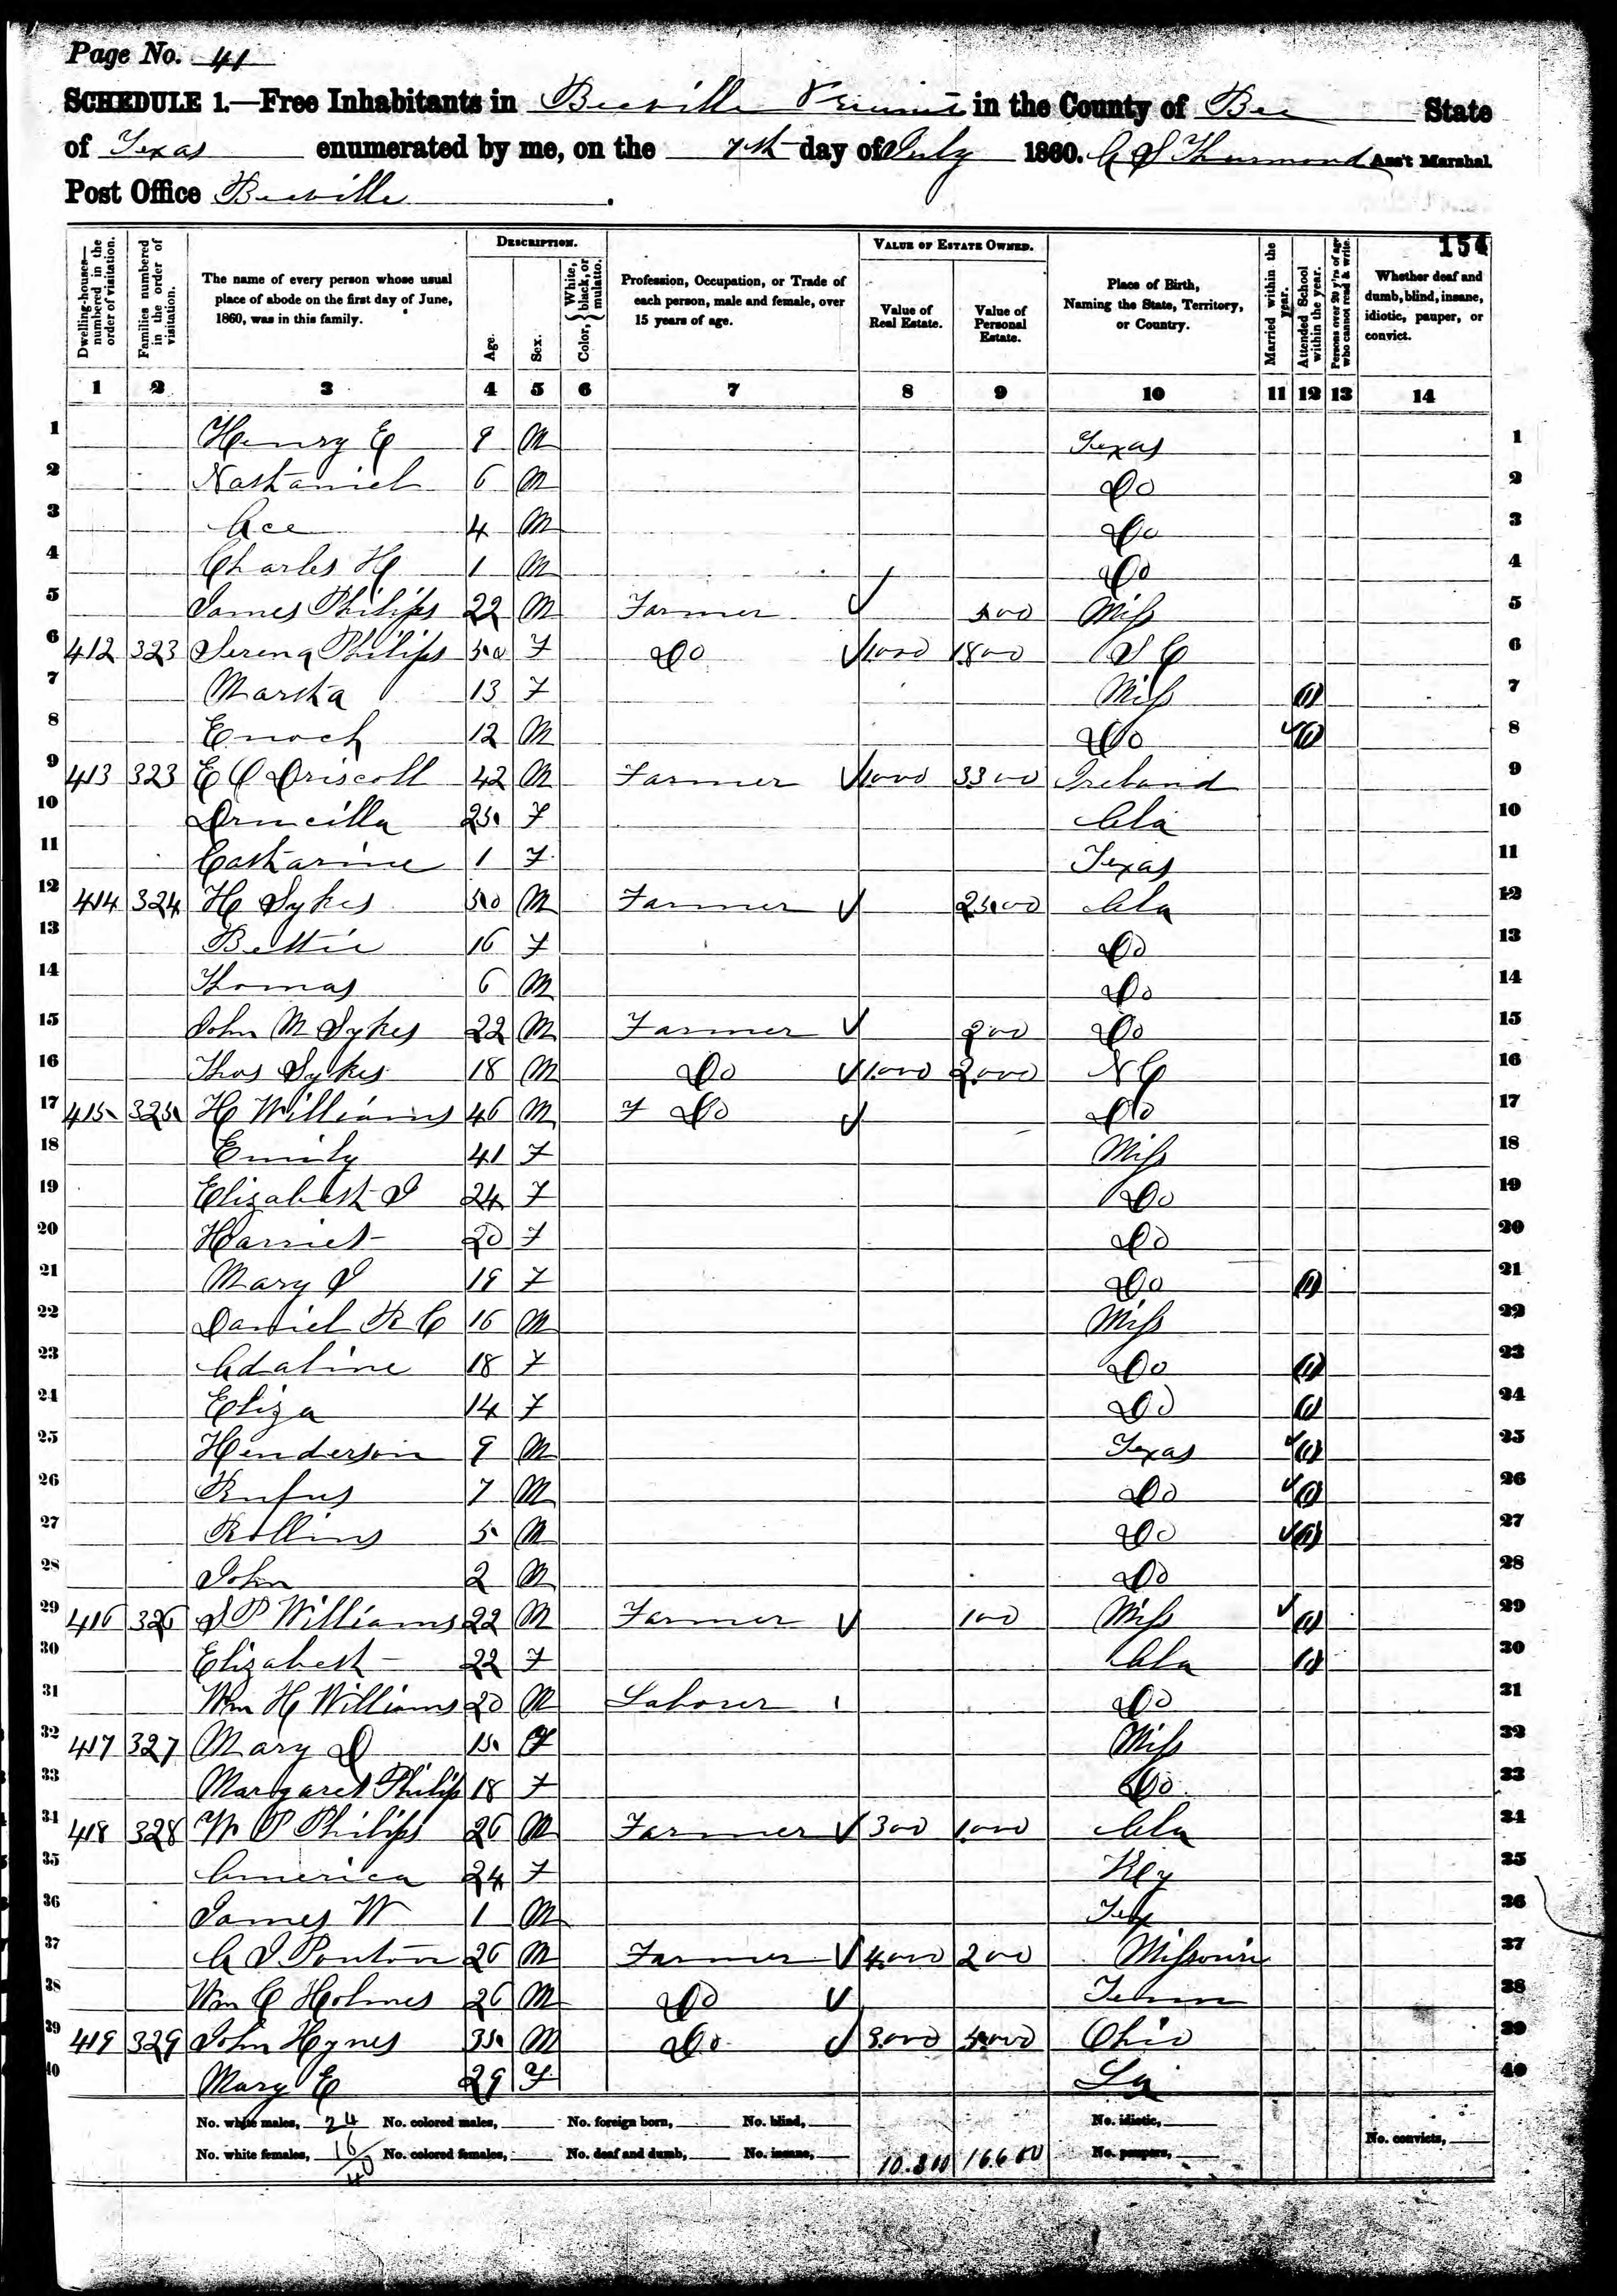 Page No. 41
SCHEDULE 1.—Free Inhabitants in Beeville Precinct in the County of Bee State
of Texas enumerated by me, on the 7th day of July 1860. A S Thurmond Ass't Marshal.
Post Office Beeville.
154
Dwelling-houses—numbered in the order of visitation.
Families numbered in the order of visitation.
The name of every person whose usual place of abode on the first day of June, 1860, was in this family.
DESCRIPTION.
Age.
Sex.
Color, {White, black, or mulatto.
Profession, Occupation, or Trade of each person, male and female, over 15 years of age.
VALUE OF ESTATE OWNED.
Value of Real Estate.
Value of Personal Estate.
Place of Birth, Naming the State, Territory, or Country.
Married within the year.
Attended School within the year.
Persons over 20 y'rs of age who cannot read & write.
Whether deaf and dumb, blind, insane, idiotic, pauper, or convict.
1 2 3 4 5 6 7 8 9 10 11 12 13 14
1 Henry E 9 M Texas 1
2 Nathaniel 6 M Do 2
3 Ace 4 M Do 3
4 Charles H 1 M Do 4
5 James Philips 22 M Farmer Miss 5
6 412 323 Serena Philips 50 F Do 1000 1800 S C 6
7 Martha 13 F Miss 1 7
8 Enoch 12 M Do 1 8
9 413 323 E O Driscoll 42 M Farmer 1000 3300 Ireland 9
10 Drucilla 25 F Ala 10
11 Catharine 1 F Texas 11
12 414 324 H Sykes 50 M Farmer 2500 Ala 12
13 Bettie 16 F Do 13
14 Thomas 6 M Do 14
15 John M Sykes 22 M Farmer 200 Do 15
16 Thos Sykes 18 M Do 1000 2000 N C 16
17 415 325 H Williams 46 M F Do Do 17
18 Emily 41 F Miss 18
19 Elizabeth J 24 F Do 19
20 Harriet 20 F Do 20
21 Mary J 19 F Do 1 21
22 Daniel R C 16 M Miss 22
23 Adaline 18 F Do 1 23
24 Eliza 14 F Do 1 24
25 Henderson 9 M Texas 1 25
26 Rufus 7 M Do 1 26
27 Rollins 5 M Do 1 27
28 John 2 M Do 28
29 416 326 S P Williams 22 M Farmer 100 Miss 1 29
30 Elizabeth 22 F Ala 1 30
31 Wm H Williams 20 M Laborer Do 31
32 417 327 Mary D 15 F Miss 32
33 Margaret Philips 18 F Do 33
34 418 328 W P Philips 26 M Farmer 300 1000 Ala 34
35 America 24 F Ky 35
36 James W 1 M Tex 36
37 A J Ponton 26 M Farmer 4000 200 Missouri 37
38 Wm C Holmes 26 M Do Tenn 38
39 419 329 John Hynes 35 M Do 3000 Ohio 39
40 Mary E 29 F La 40
No. white males, 24 No. colored males, No. foreign born, No. blind, No. idiotic,
No. white females, 16 No. colored females, No. deaf and dumb, No. insane, 10.300 16600 No. paupers, No. convicts,
40